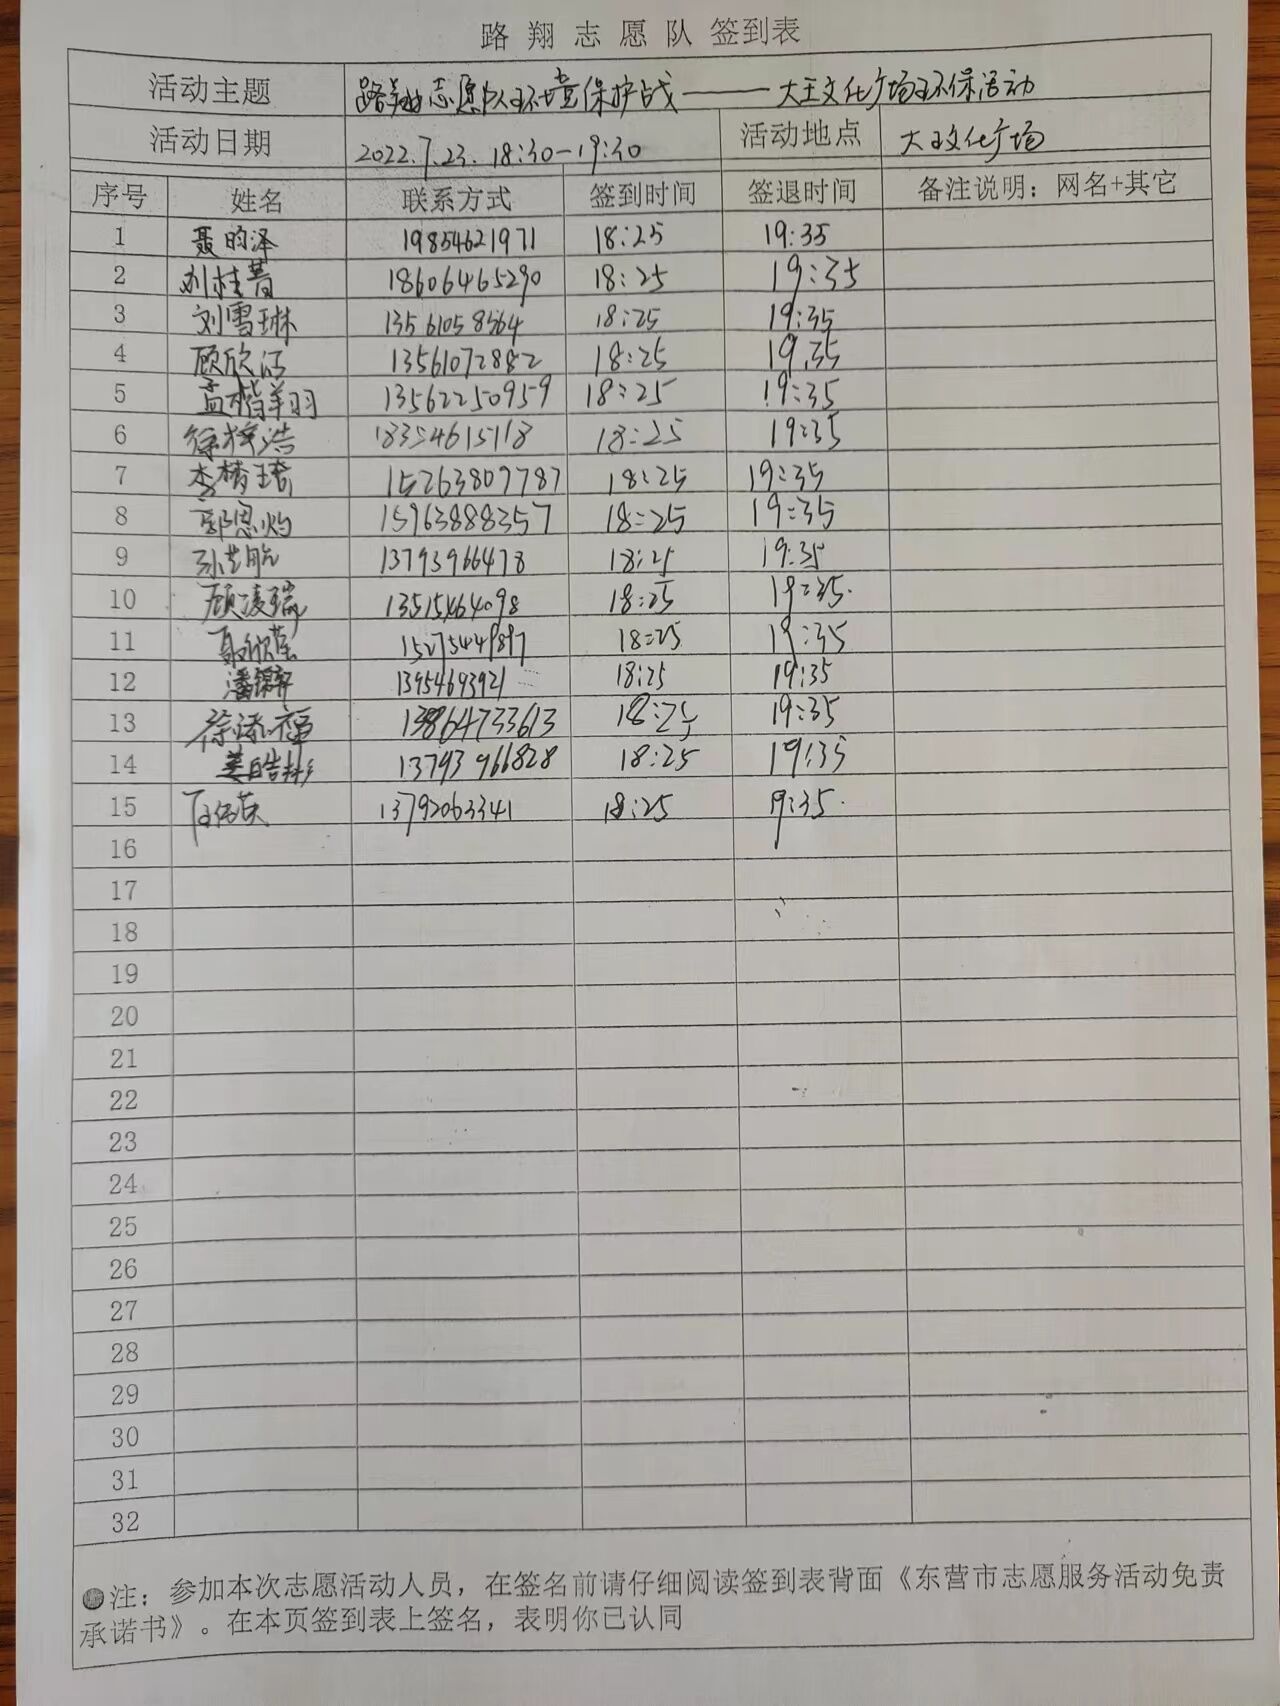 路翔志愿队 签到表
活动主题 路翔志愿队环境保护战——大王文化广场环保活动
活动日期 2022.7.23. 18:30-19:30 活动地点 大王文化广场
序号 姓名 联系方式 签到时间 签退时间 备注说明：网名+其它
1 聂昀泽 19854621971 18:25 19:35
2 刘桂菁 18606465290 18:25 19:35
3 刘雪琳 13561058564 18:25 19:35
4 顾欣 13561072882 18:25 19.35
5 孟楷羽 13562250959 18:25 19:35
6 徐梓浩 18354615118 18:25 19:35
7 李楷琦 15263807787 18:25 19:35
8 郭恩灼 15963888357 18:25 19:35
9 13793966478 18:25 19:35
10 顾凌瑞 13515464098 18:25 19:35.
11 聂欣莹 15275449897 18:25 19:35
12 潘 13954693921 18:25 19:35
13 徐 13864733613 18:25 19:35
14 姜皓彬 13793966828 18:25 19:35
15 13792063341 18:25 19:35.
16
17
18
19
20
21
22
23
24
25
26
27
28
29
30
31
32
●注：参加本次志愿活动人员，在签名前请仔细阅读签到表背面《东营市志愿服务活动免责
承诺书》。在本页签到表上签名，表明你已认同